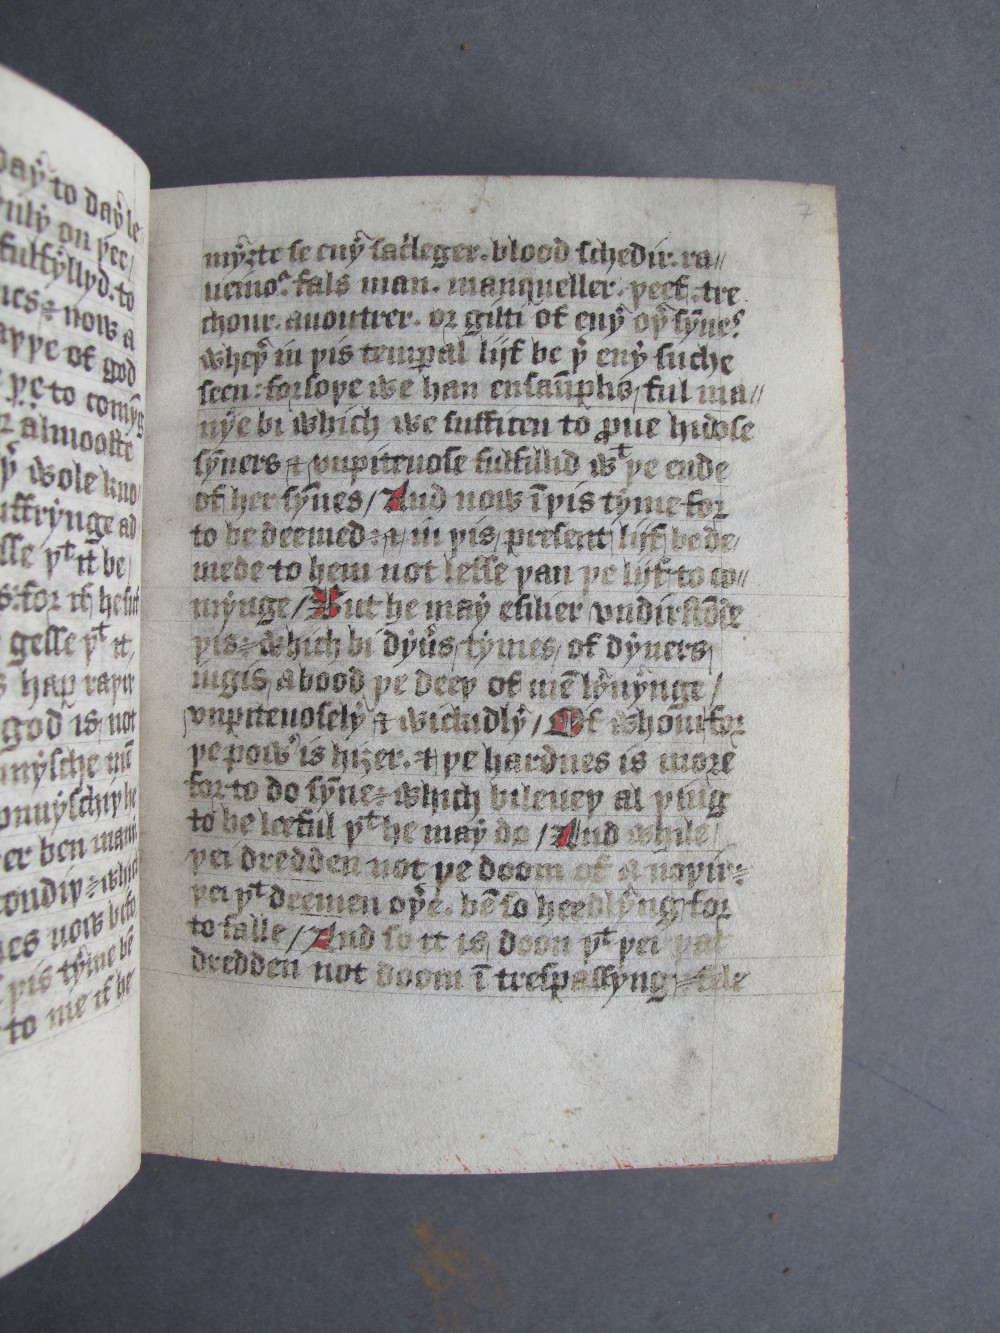 day to day le
fulfyllyd. to
now a
of god
þe to comyng
almooste
wole kno
suffrynge ad
þͭ it be
for if he
gesse þͭ it
hap raþir
god is not
ben
now
þis tyme ben
to me if he
7
myȝte se eny sacleger. blood schedir. ra//
uenoꝰ. fals man. manqueller. þeef. tre
chour. auoutrer. or gilti of eny oþ synes
wheþ in þis temꝑal lijf be þ eny suche
seen: forsoþe we han ensaūplis ful ma//
nye bi which we sufficen to ꝓue hidose
syners ⁊ vnpitenose fulfillid wͭ þe ende
of her synes / And now ī þis tyme for
to be deemed: ⁊ in þis present lijf be de/
mede to hem not lesse þan þe lijf to co//
mynge / But he may esilier vndirstōde
þis: which bi dyūs tymes of dyuers
abood þe deeþ of mē lyuynge /
vnpitenosely ⁊ wickidly / Of whom for
þe powͬ is hiȝer. ⁊ þe hardnes is more
for to do syne: which bileueþ al þing
to be leeful þͭ he may do / And while
þei dredden not þe doom of a noþir:
þei þͭ deemen oþe. bē so heedlyng for
to falle / And so it is doon þͭ þei þat
dredden not doom ī trespassyng: fele